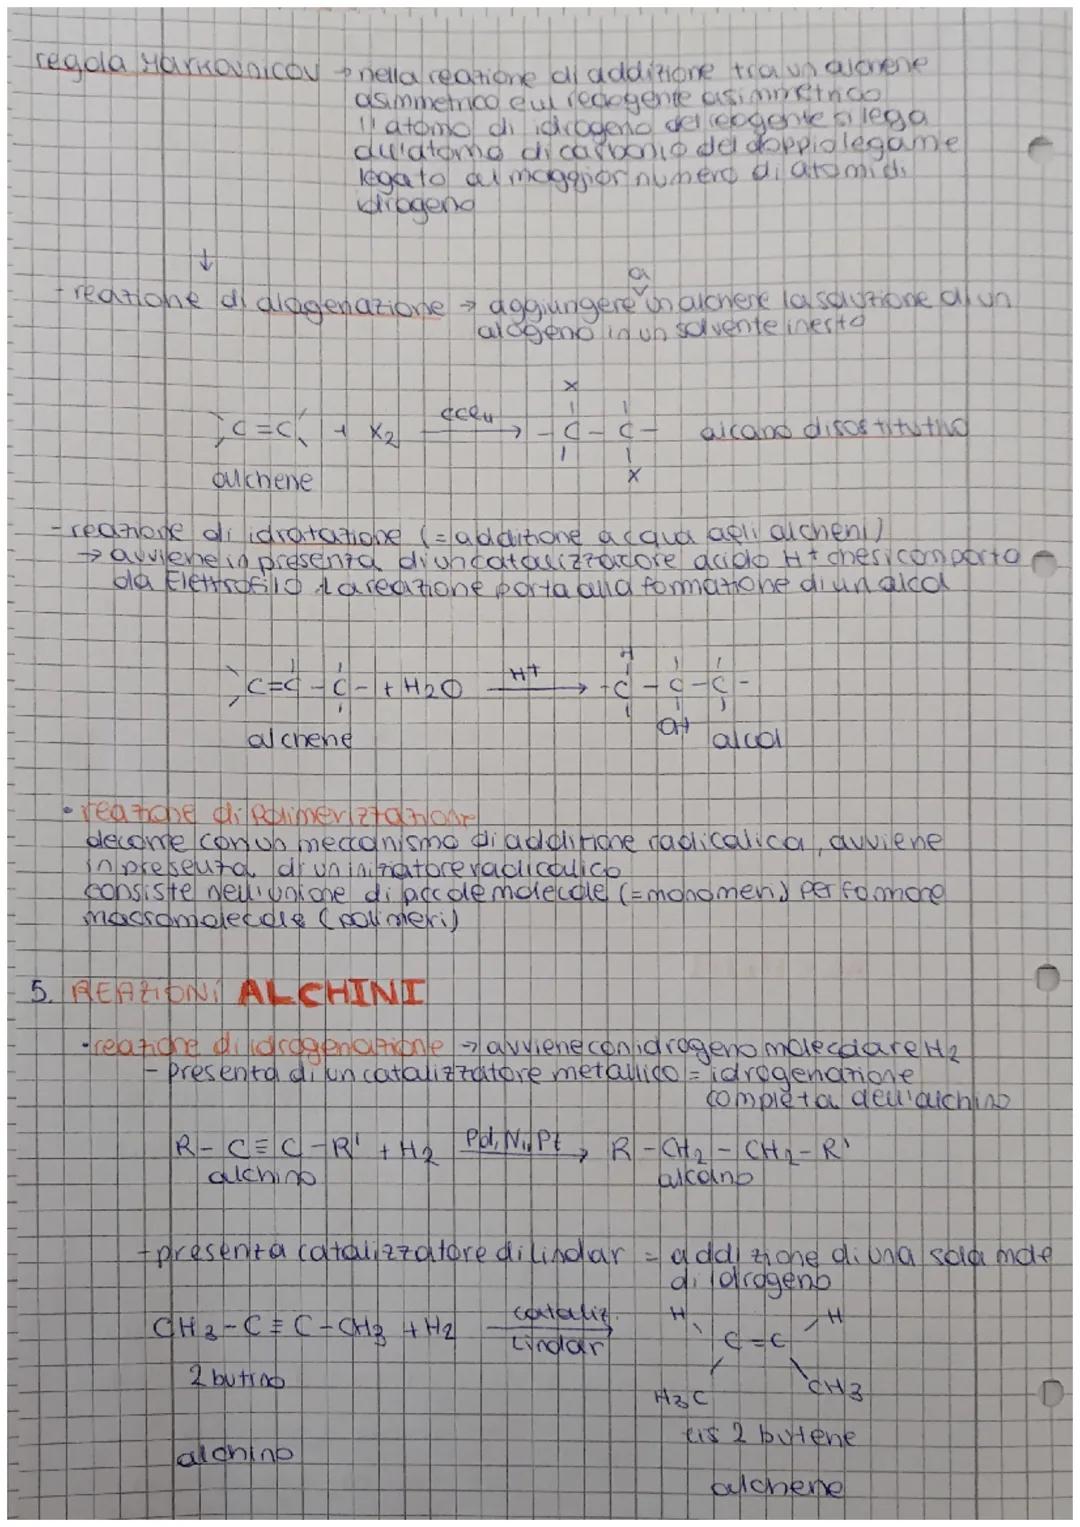 regola Markovnicov → nella reazione di addizione tra un alchene
asimmetrico e un reagente asimmetrico
l'atomo di idrogeno del reagente si lega
all'atomo di carbonio del doppio legame
legato al maggior numero di atomi di
idrogeno
↓
- reazione di alogenazione → aggiungere a un alchene la soluzione di un
alogeno in un solvente inerte
C=C + X2 CCl4 → X - C - C - X alcano disostitutivo
alchene
- reazione di idratazione (= addizione acqua agli alcheni)
→ avviene in presenza di un catalizzatore acido H+ che si comporta
da Elettrofilo la reazione porta alla formazione di un alcol
C=C-C- + H2O H+ → H -C-C-C- OH
alchene alcol
• reazione di Polimerizzazione
decorre con un meccanismo di addizione radicalica, avviene
in presenza di un iniziatore radicalico
consiste nell'unione di piccole molecole (=monomeri) per formare
macromolecole (polimeri)
5. REAZIONI ALCHINI
• reazione di idrogenazione → avviene con idrogeno molecolare H2
- presenza di un catalizzatore metallico = idrogenazione
completa dell'alchino
R-C≡C-R' + H2 Pd, Ni, Pt → R-CH2-CH2-R'
alchino alcano
- presenza catalizzatore di lindlar = addizione di una sola mole
di idrogeno
CH3-C≡C-CH3 + H2 cataliz. lindlar H C=C H
2 butino H3C CH3
cis 2 butene
alchino
alchene